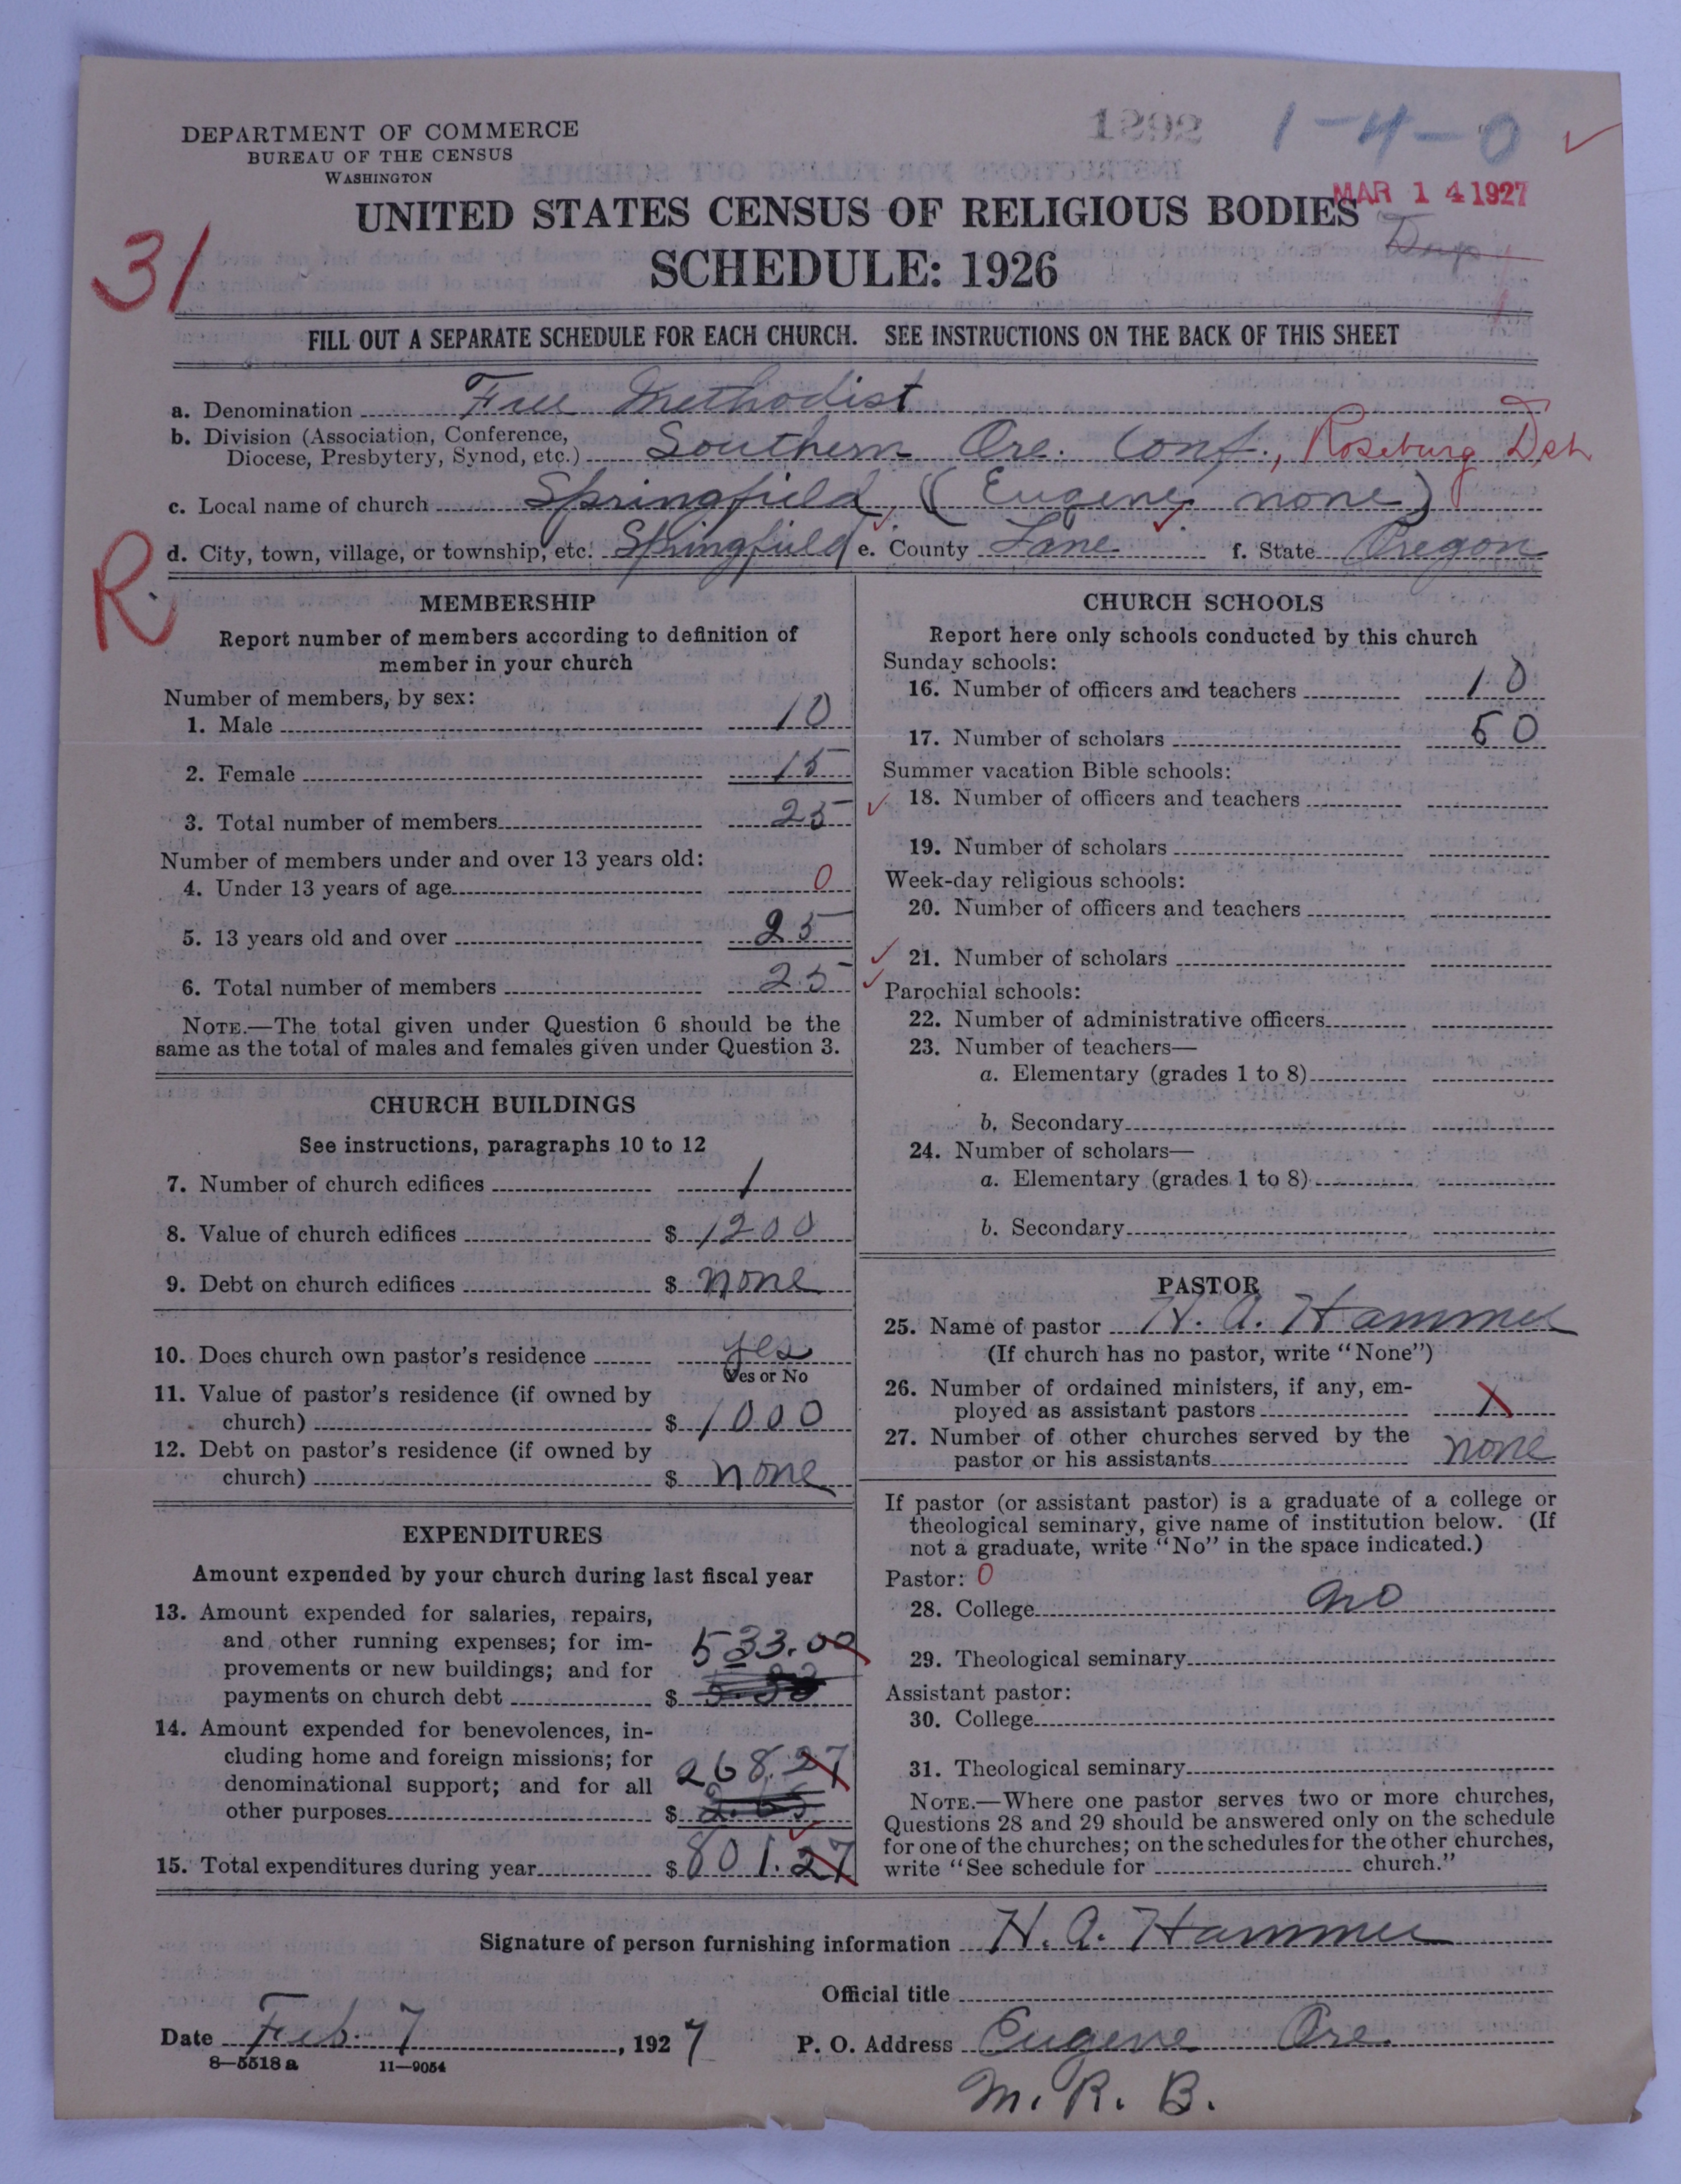 1292
1-4-0
DEPARTMENT OF COMMERCE
BUREAU OF THE CENSUS
WASHINGTON
MAR 14 1927
UNITED STATES CENSUS OF RELIGIOUS BODIES
SCHEDULE: 1926
31
FILL OUT A SEPARATE SCHEDULE FOR EACH CHURCH. SEE INSTRUCTIONS ON THE BACK OF THIS SHEET
a. Denomination Free Methodist
b. Division (Association, Conference,
Diocese, Presbytery, Synod, etc.) Southern Ore. Conf., Roseburg Dist
c. Local name of church Springfield (Eugene, none)
d. City, town, village, or township, etc. Springfield e. County Lane f. State Oregon
R.
MEMBERSHIP
Report number of members according to definition of
member in your church
Number of members, by sex:
1. Male 10
2. Female 15
3. Total number of members 25
Number of members under and over 13 years old:
4. Under 13 years of age 0
5. 13 years old and over 25
6. Total number of members 25
NOTE.—The total given under Question 6 should be the
same as the total of males and females given under Question 3.
CHURCH BUILDINGS
See instructions, paragraphs 10 to 12
7. Number of church edifices 1
8. Value of church edifices $ 1200
9. Debt on church edifices $ none
10. Does church own pastor's residence yes
Yes or No
11. Value of pastor's residence (if owned by
church) $ 1000
12. Debt on pastor's residence (if owned by
church) $ none
EXPENDITURES
Amount expended by your church during last fiscal year
13. Amount expended for salaries, repairs,
and other running expenses; for im-
provements or new buildings; and for
payments on church debt $ 533.00
14. Amount expended for benevolences, in-
cluding home and foreign missions; for
denominational support; and for all
other purposes $ 268.27
15. Total expenditures during year $ 801.27
CHURCH SCHOOLS
Report here only schools conducted by this church
Sunday schools:
16. Number of officers and teachers 10
17. Number of scholars 50
Summer vacation Bible schools:
18. Number of officers and teachers
19. Number of scholars
Week-day religious schools:
20. Number of officers and teachers
21. Number of scholars
Parochial schools:
22. Number of administrative officers
23. Number of teachers—
a. Elementary (grades 1 to 8)
b. Secondary
24. Number of scholars—
a. Elementary (grades 1 to 8)
b. Secondary
PASTOR
25. Name of pastor H. A. Hammer
(If church has no pastor, write "None")
26. Number of ordained ministers, if any, em-
ployed as assistant pastors 1
27. Number of other churches served by the
pastor or his assistants none
If pastor (or assistant pastor) is a graduate of a college or
theological seminary, give name of institution below. (If
not a graduate, write "No" in the space indicated.)
Pastor: 0
28. College no
29. Theological seminary
Assistant pastor:
30. College
31. Theological seminary
NOTE.—Where one pastor serves two or more churches,
Questions 28 and 29 should be answered only on the schedule
for one of the churches; on the schedules for the other churches,
write "See schedule for church."
Signature of person furnishing information H. A. Hammer
Official title
Date Feb. 7, 1927 P. O. Address Eugene Ore.
8—5518 a 11—9054
M. R. B.